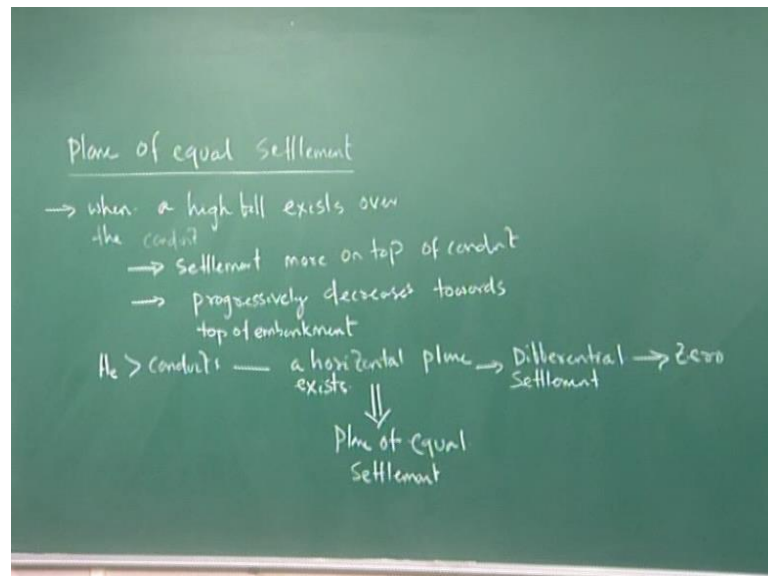 Plane of equal Settlement
→ when a high fill exists over
the conduit
→ Settlement more on top of conduit
→ progressively decreases towards
top of embankment
He > conduits — a horizontal plane → Differential → Zero
exists Settlement
⇓
Plane of equal
Settlement